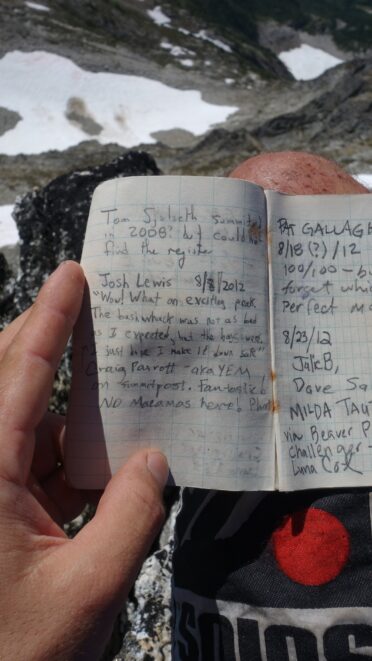 Tom Sjolseth summited
in 2008? but could not
find the register
Josh Lewis 8/8/2012
"Wow! What an exciting peak.
The bushwhack was not as bad
as I expected, but the bugs were.
I just hope I make it down safe"
Craig Parrott - aka YEM
on summitpost. Fantastic!
NO Marmots here!
PAT GALLAGH
8/18(?)/12
100/100 - bu
forget whi
Perfect
8/23/12
Julie B,
Dave Sa
MILDA TAUT
via Beaver P
Challenger
Luna Co